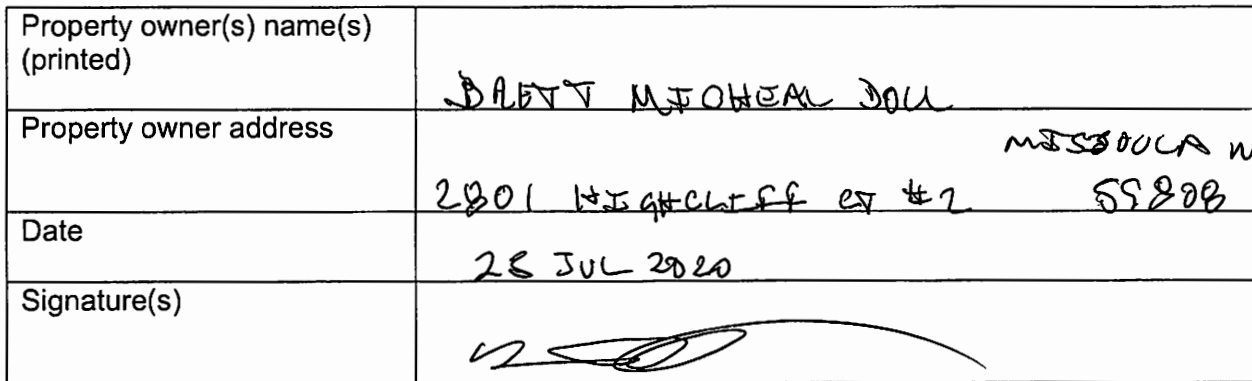 Property owner(s) name(s)
(printed)
BRETT MICHEAL DOLL
Property owner address
MISSOULA M
2801 HIGHCLIFF CT #2 59808
Date
28 JUL 2020
Signature(s)